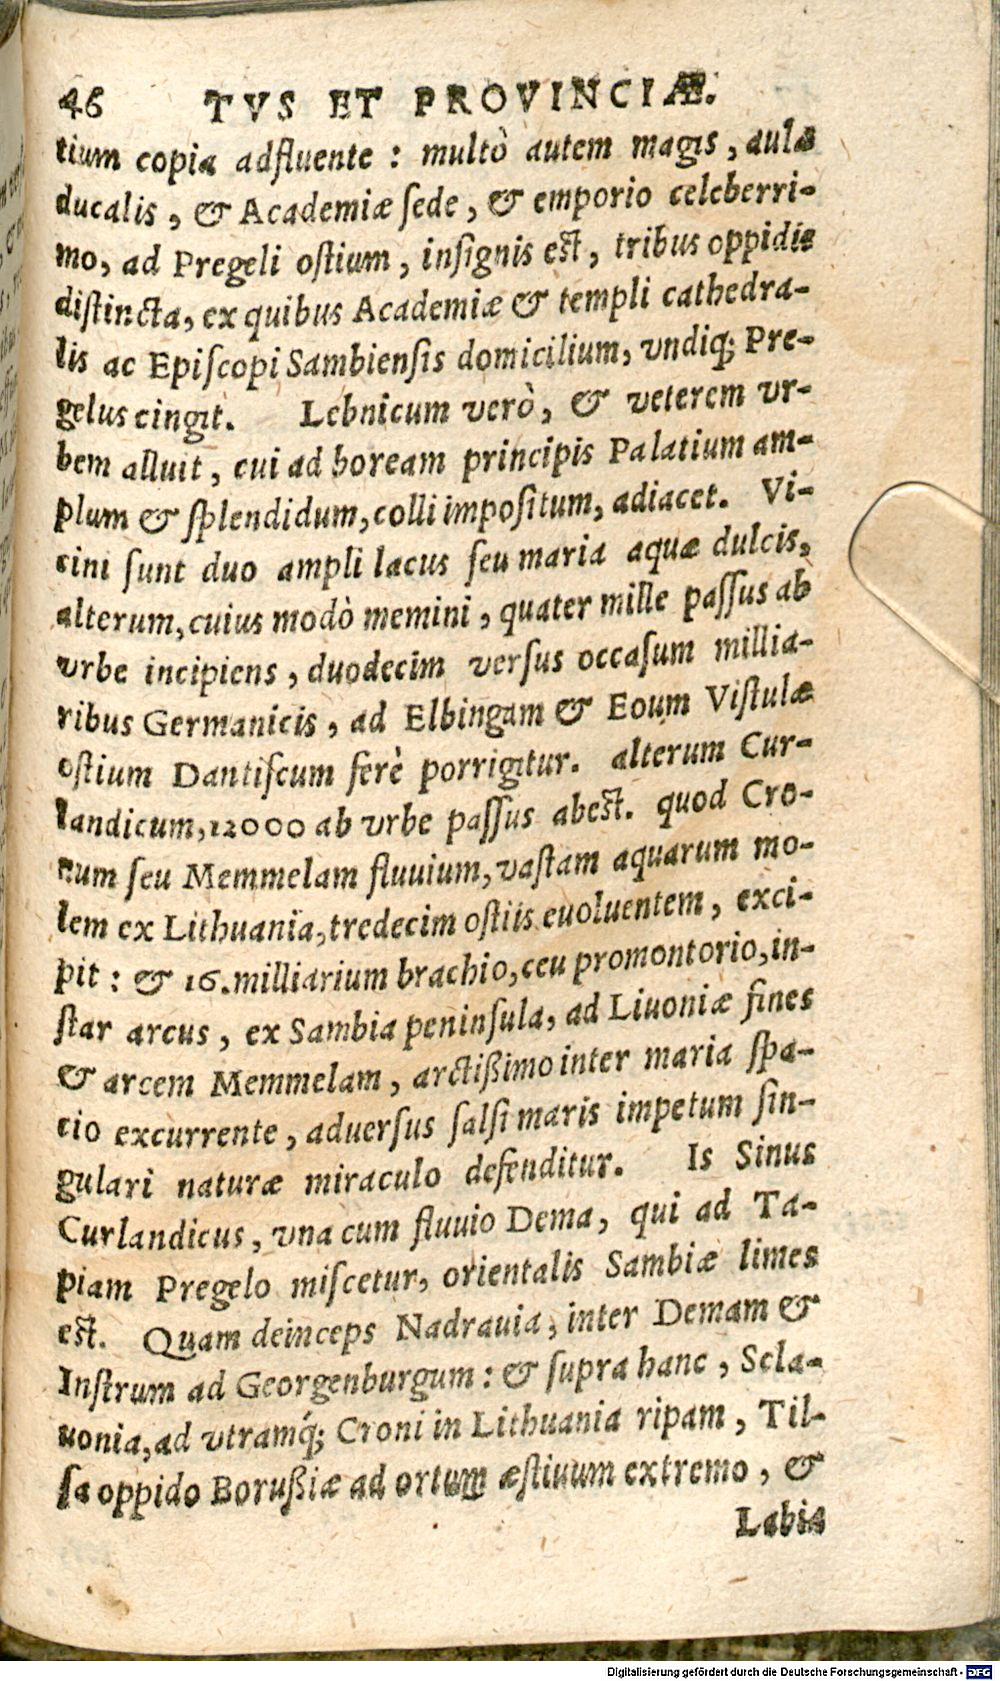 46 TVS ET PROVINCIÆ.
tium copia adfluente : multò autem magis, aula
ducalis, & Academiæ ſede, & emporio celeberri-
mo, ad Pregeli oſtium, inſignis eſt, tribus oppidis
diſtincta, ex quibus Academiæ & templi cathedra-
lis ac Epiſcopi Sambienſis domicilium, vndiq; Pre-
gelus cingit. Lebnicum verò, & veterem vr-
bem alluit, cui ad boream principis Palatium am-
plum & ſplendidum, colli impoſitum, adiacet. Vi-
cini ſunt duo ampli lacus ſeu maria aquæ dulcis,
alterum, cuius modò memini, quater mille paſſus ab
vrbe incipiens, duodecim verſus occaſum millia-
ribus Germanicis, ad Elbingam & Eoum Viſtulæ
oſtium Dantiſcum ferè porrigitur. alterum Cur-
landicum, 12000 ab vrbe paſſus abeſt. quod Cro-
num ſeu Memmelam fluuium, vaſtam aquarum mo-
lem ex Lithuania, tredecim oſtiis euoluentem, exci-
pit : & 16. milliarium brachio, ceu promontorio, in-
ſtar arcus, ex Sambia peninſula, ad Liuoniæ fines
& arcem Memmelam, arctißimo inter maria ſpa-
cio excurrente, aduerſus ſalſi maris impetum ſin-
gulari naturæ miraculo defenditur. Is Sinus
Curlandicus, vna cum fluuio Dema, qui ad Ta-
piam Pregelo miſcetur, orientalis Sambiæ limes
eſt. Quam deinceps Nadrauia, inter Demam &
Inſtrum ad Georgenburgum : & ſupra hanc, Scla-
uonia, ad vtramq́; Croni in Lithuania ripam, Til-
ſa oppido Borußiæ ad ortum æſtiuum extremo, &
Labia
Digitalisierung gefördert durch die Deutsche Forschungsgemeinschaft - DFG